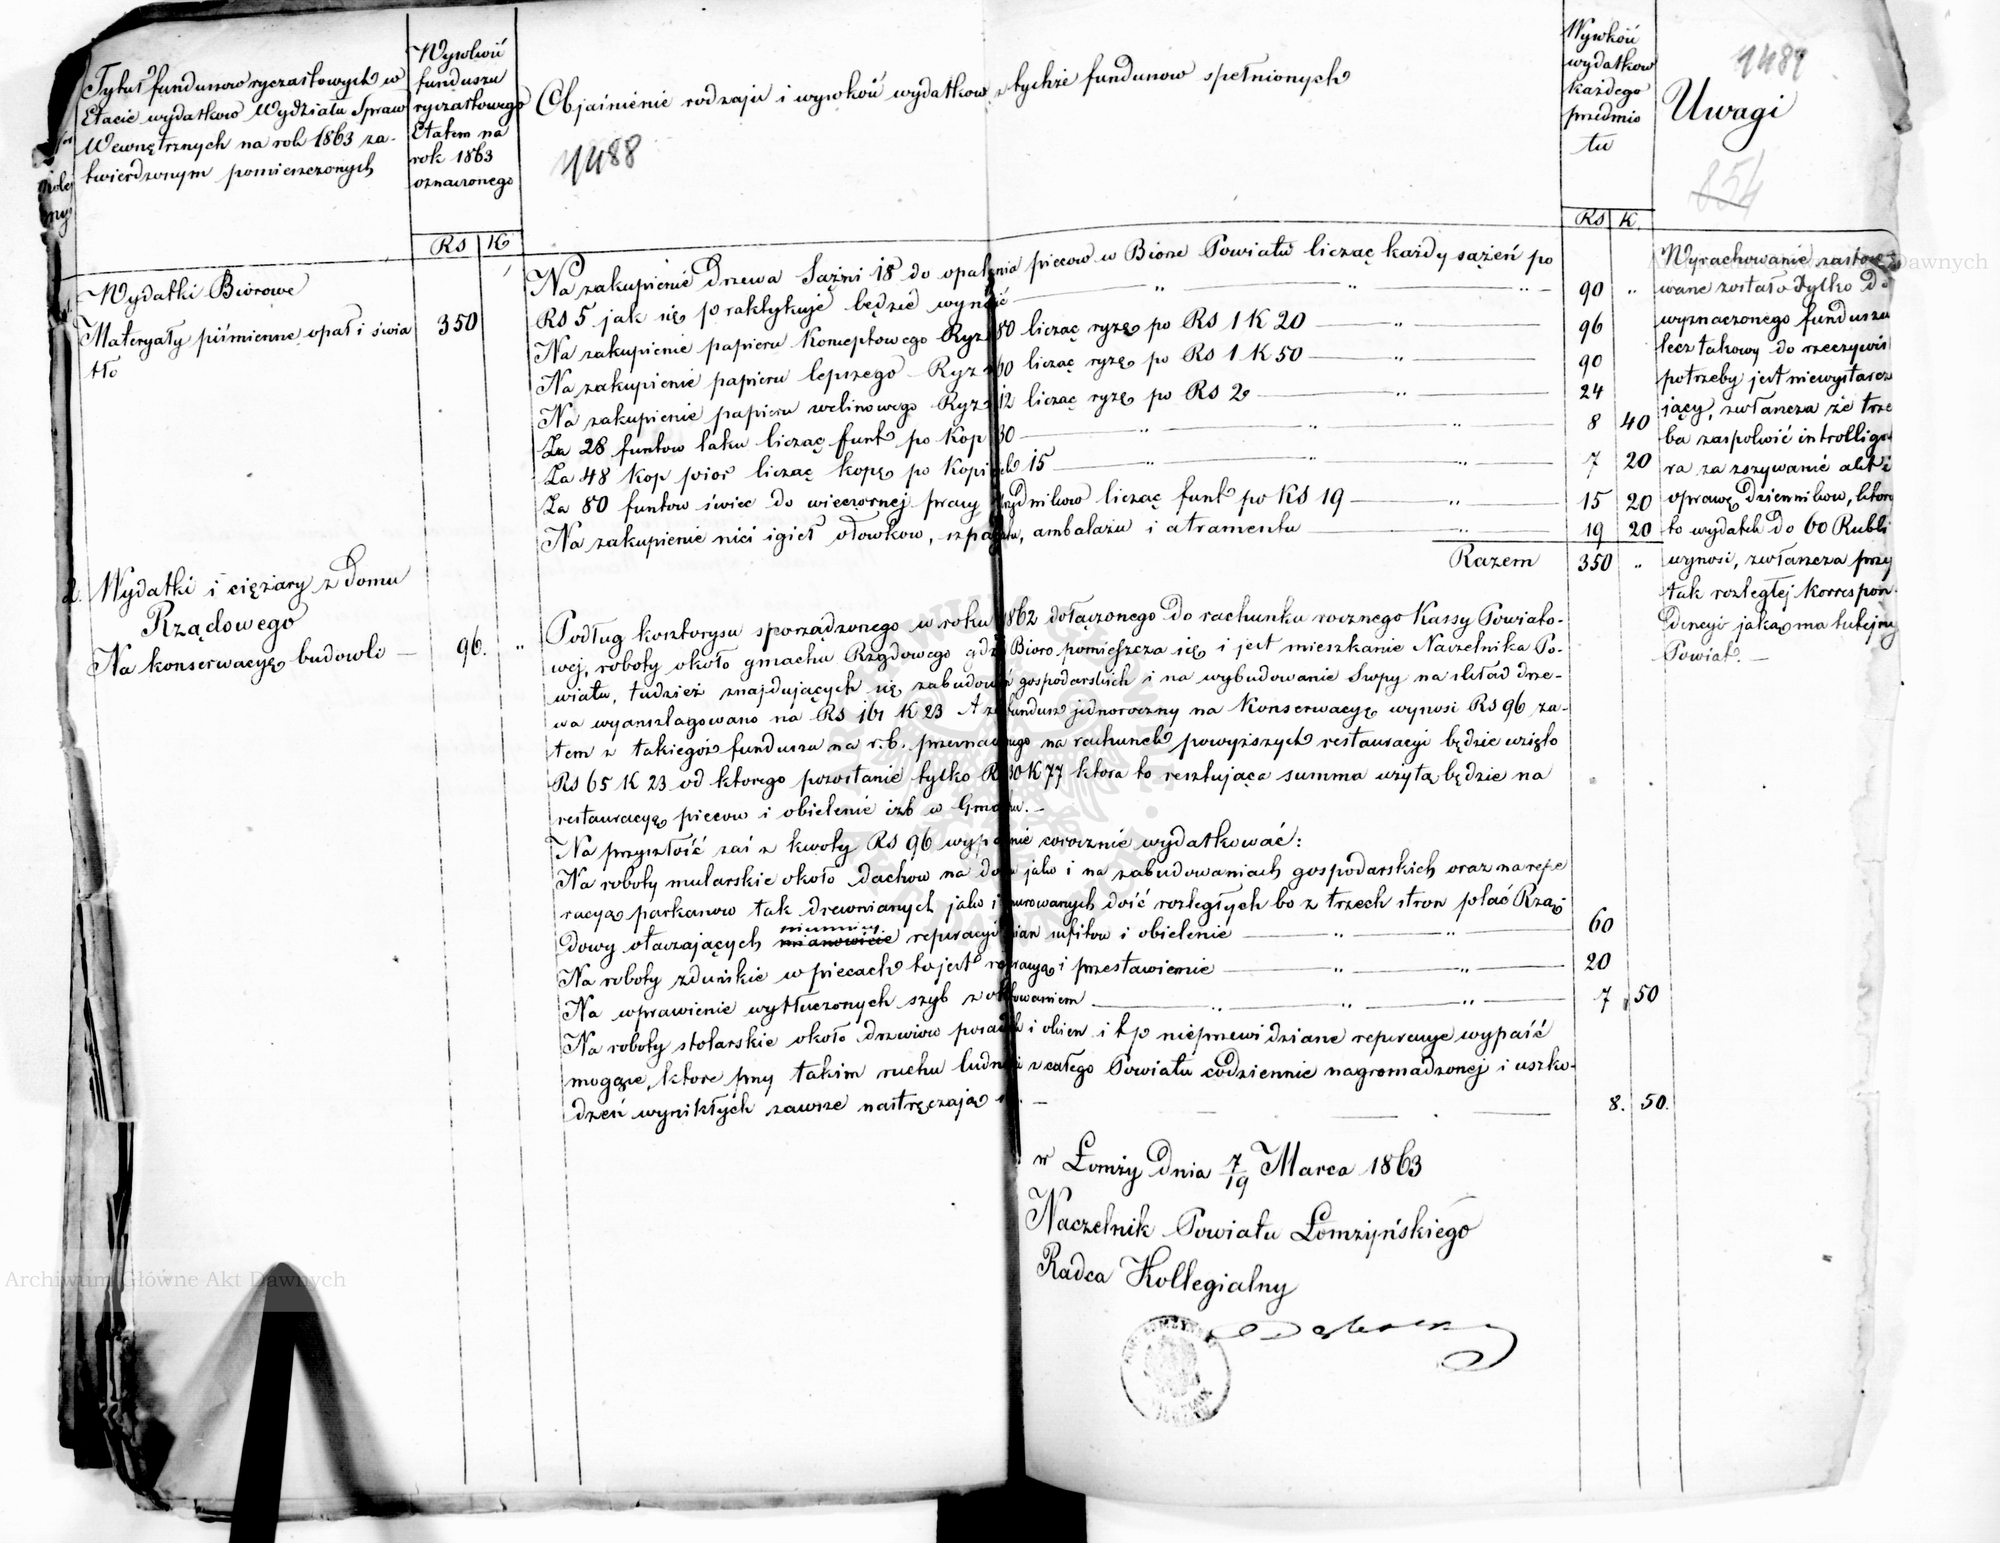 Tytuł funduszow ryczałtowych w
Etacie wydatkow Wydziału Spraw
Wewnętrznych na rok 1863 za-
twierdzonym pomieszczonych
Wysokość
funduszu
ryczałtowego
Etatem na
rok 1863
oznaczonego
Rs K
Objaśnienie rodzaju i wysokości wydatkow z tychże funduszow spełnionych
1488
Wysokość
wydatkow
każdego
przedmio
tu
Rs K.
1489
Uwagi
854
Wydatki Biorowe
Materyały piśmienne, opał i świa
tło
350
Na zakupienie Drzewa Sążni 18 do opalenia piecow w Biorze Powiatu licząc każdy sążeń po
Rs 5 jak się praktykuje będzie wynosić 90 "
Na zakupienie papieru Konceptowego Ryz 80 licząc ryzę po Rs 1 K 20 96
Na zakupienie papieru lepszego Ryz 60 licząc ryzę po Rs 1 K 50 90
Na zakupienie papieru welinowego Ryz 12 licząc ryzę po Rs 2 24
Za 28 funtow laku licząc funt po Kop 30 8 40
Za 48 kop pior licząc kopę po Kopiejek 15 7 20
Za 80 funtow świec do wieczornej pracy Urzędnikow licząc funt po KS 19 15 20
Na zakupienie nici igieł ołowkow, szpagatu, ambalażu i atramentu 19 20
Razem 350 "
Wyrachowanie zastoso
wane zostało tylko do
wyznaczonego funduszu
lecz takowy do rzeczywis
potrzeby jest niewystarcz
jący, zwłaszcza że trze
ba zaspokoić introliga
ra za zszywanie akt i
oprawę Dziennikow, ktory
to wydatek do 60 Rubli
wynosi, zwłaszcza przy
tak rozległej korrespon-
dencyi jaką ma tutejszy
Powiat. —
2. Wydatki i ciężary z Domu
Rządowego
Na konserwacyę budowli — 96. "
Podług kosztorysu sporządzonego w roku 1862 dołączonego do rachunku rocznego Kassy Powiato-
wej, roboty około gmachu Rządowego gdzie Bioro pomieszcza się i jest mieszkanie Naczelnika Po-
wiatu, tudzież znajdujących się zabudowań gospodarskich i na wybudowanie Szopy na skład drze-
wa wyanszlagowano na Rs 161 K 23 A że fundusz jednoroczny na Konserwacyę wynosi Rs 96 za-
tem z takiegoż funduszu na r.b. przeznaczonego na rachunek powyższych restauracyi będzie wzięto
Rs 65 K 23 od ktorego pozostanie tylko Rs 30 K 77 ktora to resztująca summa użytą będzie na
restauracyę piecow i obielenie izb w Gmachu. —
Na przyszłość zaś z kwoty Rs 96 wypadnie corocznie wydatkować:
Na roboty mularskie około dachow na domu jako i na zabudowaniach gospodarskich oraz na repe
racyą parkanow tak drewnianych jako i murowanych dość rozległych bo z trzech stron plac Rzą-
dowy otaczających mianowicie reperacyi ścian sufitow i obielenie 60
Na roboty zduńskie w piecach to jest reperacyą i przestawienie 20
Na wprawienie wytłuczonych szyb z okitowaniem 7 50
Na roboty stolarskie około drzwiow posadzek i okien i t p nieprzewidziane reperacye wypaść
mogące, ktore przy takim ruchu ludności z całego Powiatu codziennie nagromadzonej i uszko-
dzeń wynikłych zawsze nastręczają się. — 8. 50.
w Łomży dnia 7/19 Marca 1863
Naczelnik Powiatu Łomżyńskiego
Radca Kollegialny
Archiwum Główne Akt Dawnych